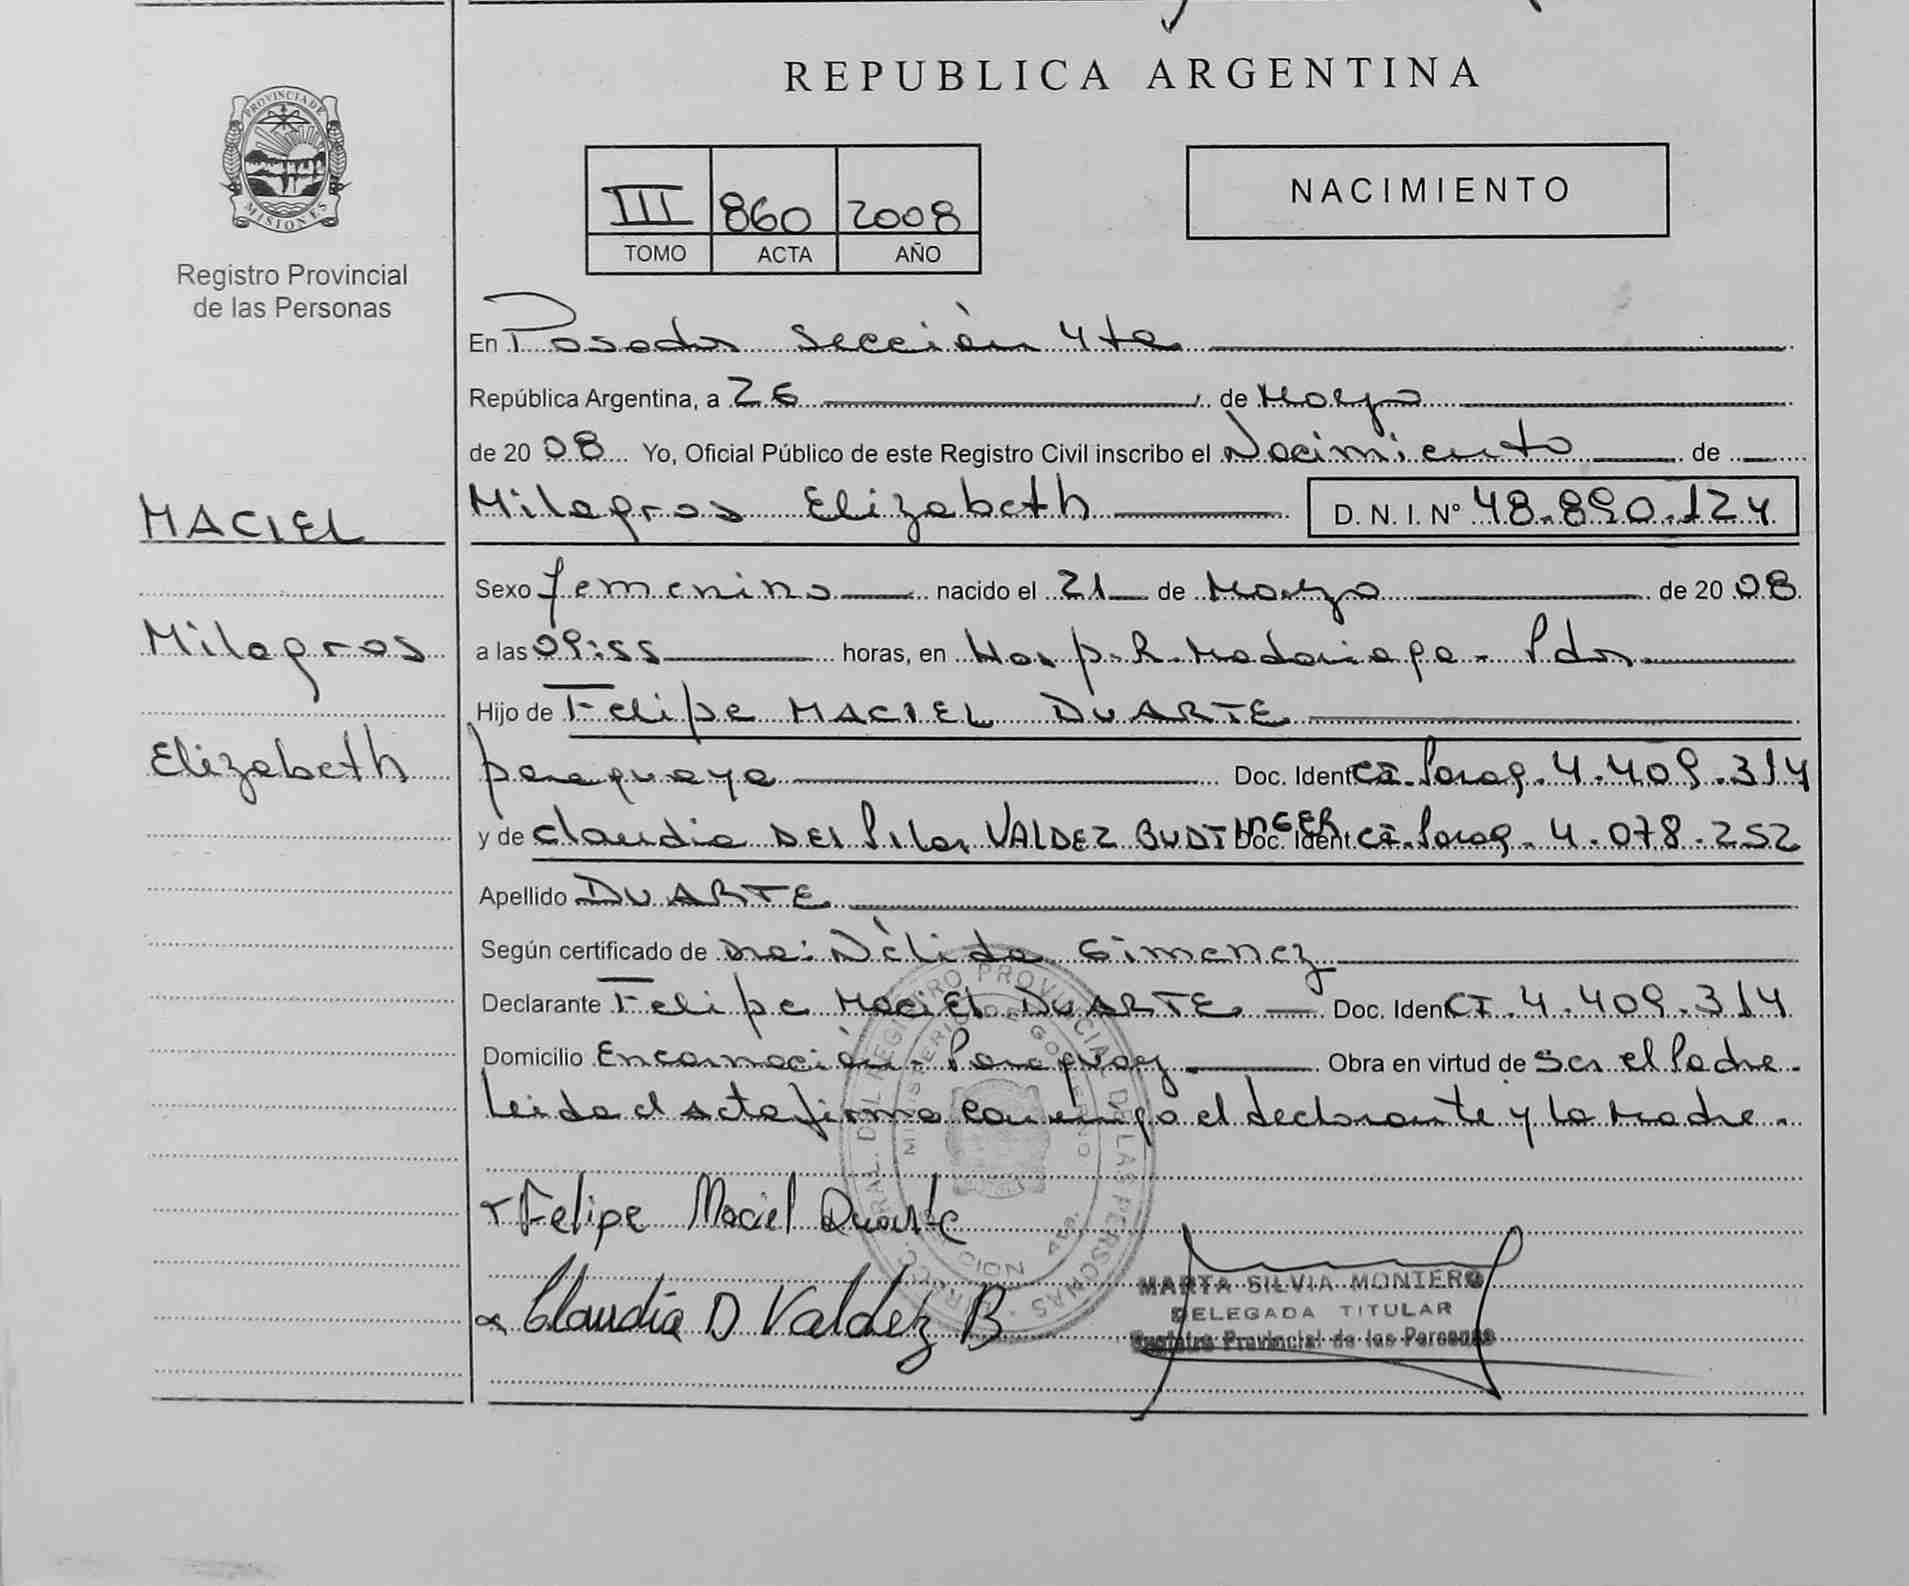 REPUBLICA ARGENTINA
PROVINCIA DE
MISIONES
Registro Provincial
de las Personas
III 860 2008
TOMO ACTA AÑO
NACIMIENTO
En Posadas Sección 4ta
República Argentina, a 26 de Marzo
de 20 08 Yo, Oficial Público de este Registro Civil inscribo el Nacimiento de
MACIEL
Milagros
Elizabeth
Milagros Elizabeth D. N. I. Nº 48.890.124
Sexo femenino nacido el 21 de Marzo de 20 08
a las 09:55 horas, en Hosp. R. Madariaga - Pdas
Hijo de Felipe MACIEL DUARTE
paraguaya Doc. Ident CI. Parag. 4.409.314
y de Claudia DEL Pilar VALDEZ BUDTINGER Doc. Ident. CI. Parag. 4.078.252
Apellido DUARTE
Según certificado de Dra: Nélida Gimenez
Declarante Felipe MACIEL DUARTE Doc. Iden CI. 4.409.314
Domicilio Encarnación - Paraguay. Obra en virtud de Ser el Padre.
Leida el acta firma conmigo el declarante y la Madre.
Felipe Maciel Duarte
Claudia D Valdez B
MARTA SILVIA MONTERO
DELEGADA TITULAR
Registro Provincial de las Personas
REGISTRO PROVINCIAL DE LAS PERSONAS
MINISTERIO DE GOBIERNO